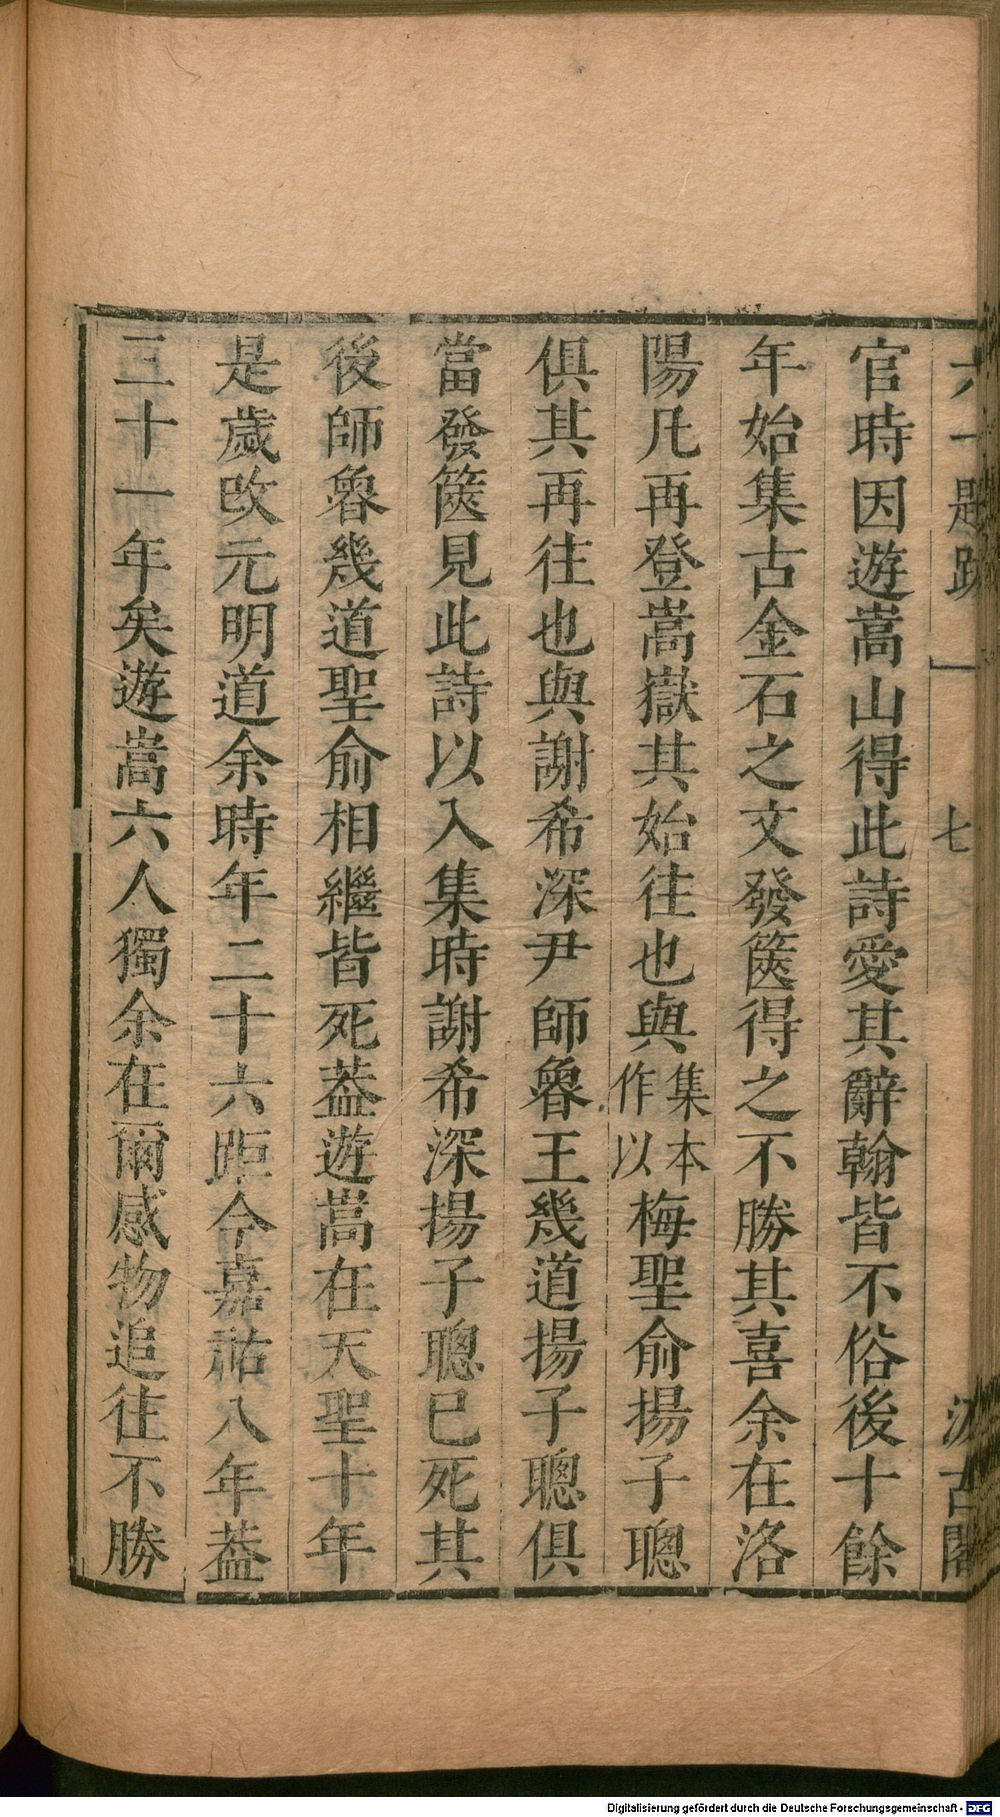 六一題跋 一 七 汲古閣
官時因遊嵩山得此詩愛其辭翰皆不俗後十餘
年始集古金石之文發篋得之不勝其喜余在洛
陽凡再登嵩嶽其始往也與集本作以梅聖俞揚子聰
俱其再往也與謝希深尹師魯王幾道揚子聰俱
當發篋見此詩以入集時謝希深揚子聰已死其
後師魯幾道聖俞相繼皆死葢遊嵩在天聖十年
是歲改元明道余時年二十六距今嘉祐八年葢
三十一年矣遊嵩六人獨余在爾感物追往不勝
Digitalisierung gefördert durch die Deutsche Forschungsgemeinschaft - DFG